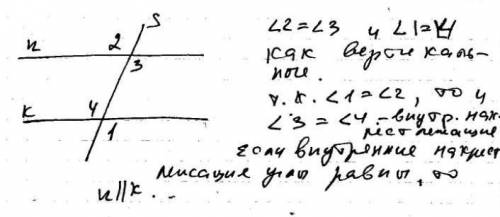 S
∠2=∠3 и ∠1=∠4
n
2
3
как вертикаль-
ные.
т.к. ∠1=∠2, то и
к
4
1
∠3=∠4 - внутр. нак-
рест лежащие
Если внутренние накрест
лежащие углы равны, то
n||к.